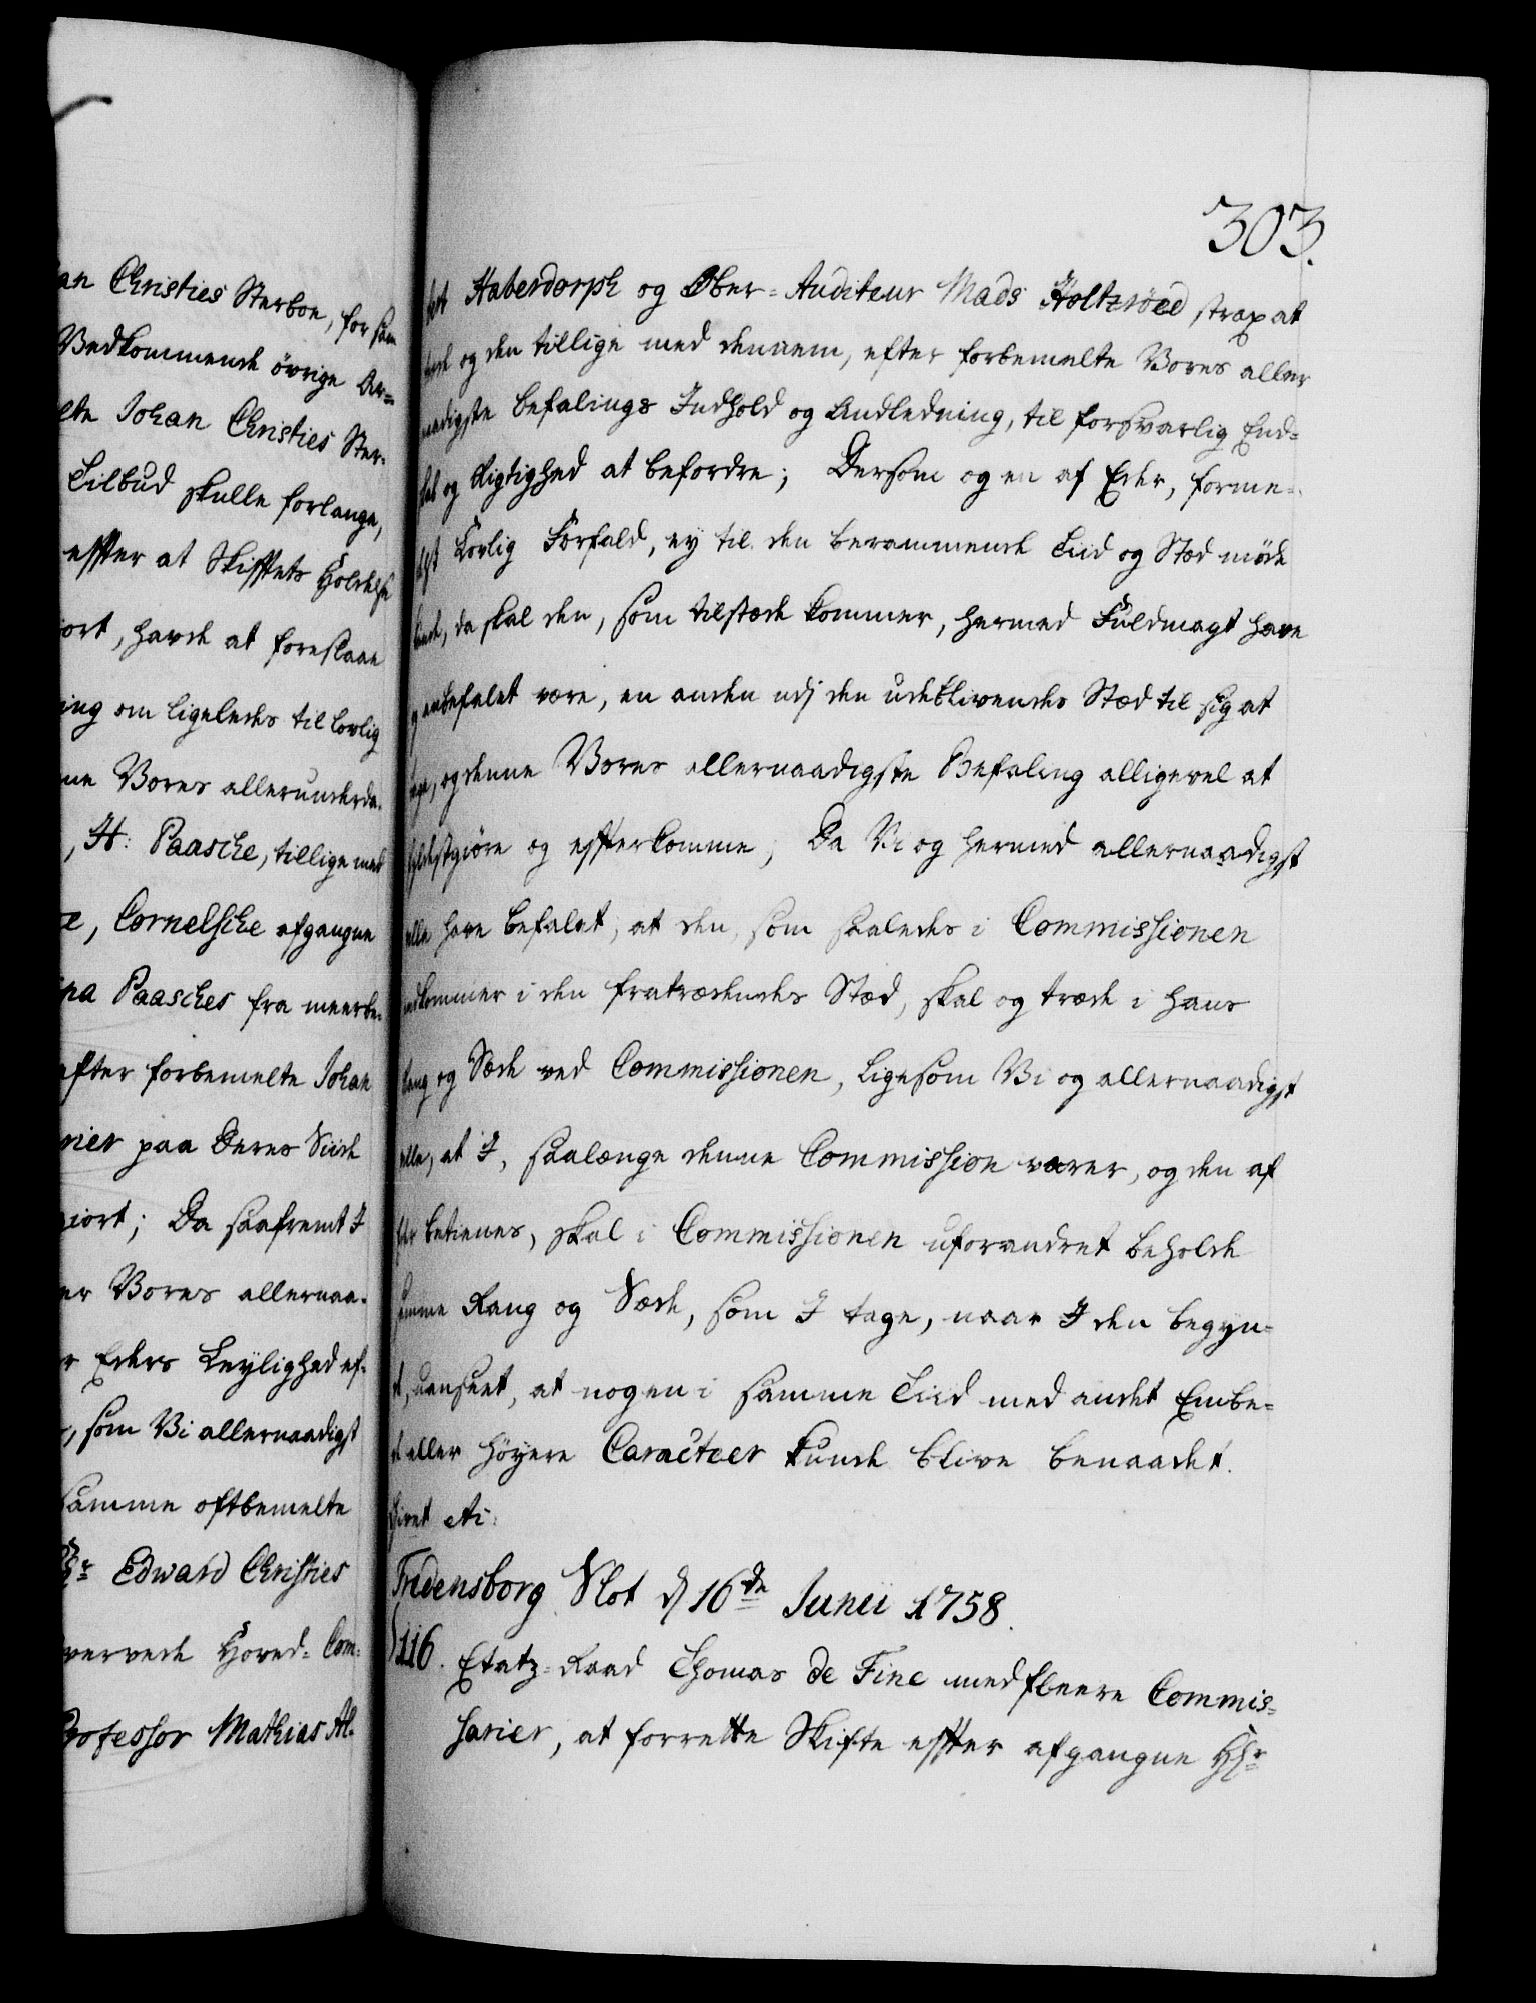 an Christies Sterboe, for sam
Vedkommende övrige Ar=
lte Johan Christies Ster=
Tilbud skulle forlange,
effter at Skifftets Holdelse
iort, havde at foreslaae
ing om ligeledes til lovlig
ne Vores allerunderda=
, H: Paasche, tillige med
e, Cornelsche afgangne
na Paasches fra meerbe=
after forbemelte Johan
rier paa Deres Siide
giort; Da saafremt I
er Vores allernaa=
r Eders Leylighed ef=
, som Vi allernaadigst
samme oftbemelte
Hr Edward Christies
vervede Hoved-Com=
Professor Mathias Al=
303.
Haberdorph og Ober-Auditeur Mads Holtzröed strax at
og den tillige med dennem, efter forbemelte Vores aller
naadigste befalings Indhold og Andledning, til forsvarlig End=
og Rigtighed at befordre; Dersom og en af Eder, forme=
Lovlig Forfald, ey til den berammende Tiid og Stæd möde
kunde, da skal den, som tilstæde kommer, hermed Fuldmagt have
anbefalet være, en anden udj den udeblivendes Stæd til sig at
tage, og denne Vores allernaadigste Befaling alligevel at
fyldestgiöre og effterkomme; Da Vi og hermed allernaadigst
ville have befalet, at den, som saaledes i Commissionen
indkommer i den fratrædendes Stæd, skal og træde i hans
Rang og Sæde ved Commissionen, ligesom Vi og allernaadigst
ville, at I, saalænge denne Commission varer, og den af
Eder betienes, skal i Commissionen uforandret beholde
samme Rang og Sæde, som I tage, naar I den begyn=
t, uanseet, at nogen i samme Tiid med andet Embe=
de eller höyere Caracteer kunde blive benaadet.
Givet etc:
Fredensborg Slot d 16de Junii 1758.
116. Etatz-Raad Thomas de Fine med fleere Commis=
sarier, at forrette Skifte effter afgangne Hr